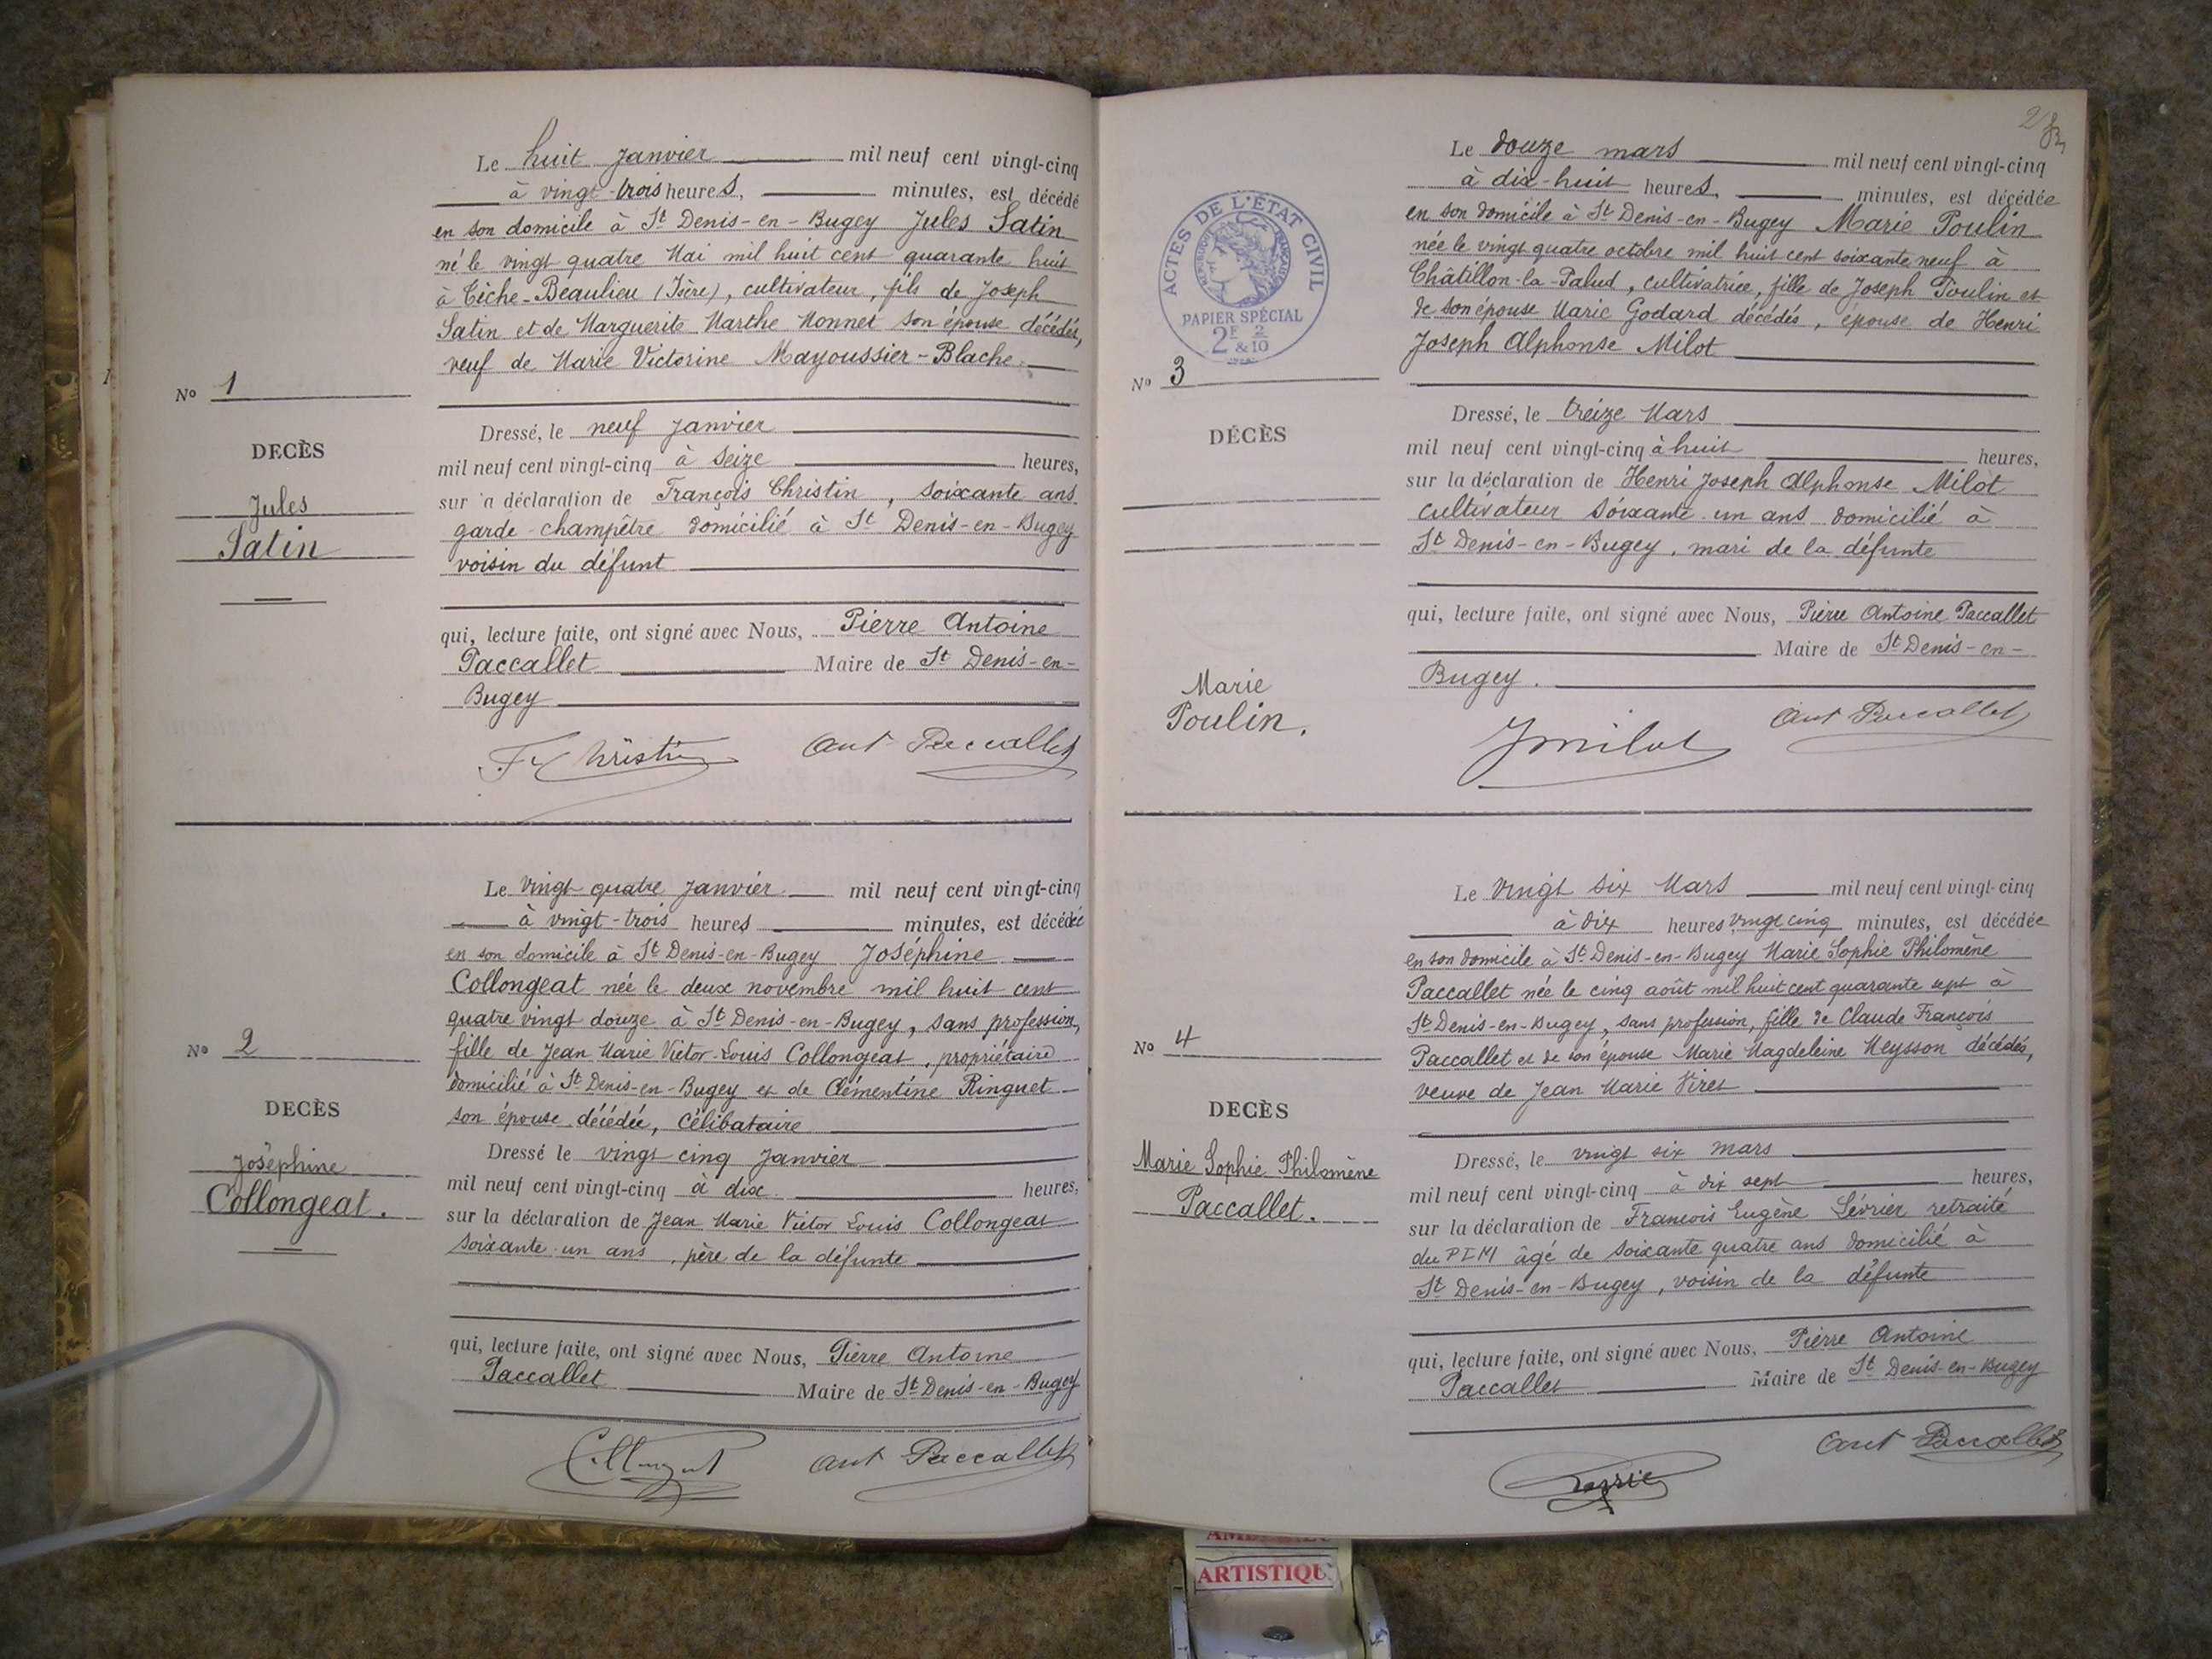 Le huit Janvier mil neuf cent vingt-cinq
à vingt-trois heures, minutes, est décédé
en son domicile à St Denis-en-Bugey Jules Satin
né le vingt quatre Mai mil huit cent quarante huit
à Têche-Beaulieu (Isère), cultivateur, fils de Joseph
Satin et de Marguerite Marthe Monnet son épouse décédés,
veuf de Marie Victorine Mayoussier-Blache.
No 1
DECÈS
Jules
Satin
Dressé, le neuf Janvier
mil neuf cent vingt-cinq à seize heures,
sur a déclaration de François Christin, soixante ans
garde-champêtre domicilié à St Denis-en-Bugey
voisin du défunt
qui, lecture faite, ont signé avec Nous, Pierre Antoine
Paccallet Maire de St Denis-en-
Bugey
Fs Christin Ant Paccallet
Le vingt quatre Janvier mil neuf cent vingt-cinq
à vingt-trois heures minutes, est décédée
en son domicile à St Denis-en-Bugey Joséphine
Collongeat née le deux novembre mil huit cent
quatre vingt douze à St Denis-en-Bugey, sans profession,
fille de Jean Marie Victor Louis Collongeat, propriétaire
domicilié à St Denis-en-Bugey et de Clémentine Ringuet
son épouse décédée, célibataire
No 2
DECÈS
Joséphine
Collongeat.
Dressé le vingt cinq Janvier
mil neuf cent vingt-cinq à dix heures,
sur la déclaration de Jean Marie Victor Louis Collongeat
soixante un ans, père de la défunte
qui, lecture faite, ont signé avec Nous, Pierre Antoine
Paccallet Maire de St Denis-en-Bugey
Collongeat Ant Paccallet
ACTES DE L'ÉTAT CIVIL
RÉPUBLIQUE FRANÇAISE
PAPIER SPÉCIAL
2F & 2/10
Le douze mars mil neuf cent vingt-cinq
à dix-huit heures, minutes, est décédée
en son domicile à St Denis-en-Bugey Marie Poulin
née le vingt quatre octobre mil huit cent soixante neuf à
Châtillon-la-Palud, cultivatrice, fille de Joseph Poulin et
de son épouse Marie Godard décédés, épouse de Henri
Joseph Alphonse Milot
No 3
DÉCÈS
Marie
Poulin.
Dressé, le treize Mars
mil neuf cent vingt-cinq à huit heures,
sur la déclaration de Henri Joseph Alphonse Milot
cultivateur soixante un ans domicilié à
St Denis-en-Bugey, mari de la défunte
qui, lecture faite, ont signé avec Nous, Pierre Antoine Paccallet
Maire de St Denis-en-
Bugey.
Jmilot Ant Paccallet
Le vingt six Mars mil neuf cent vingt-cinq
à dix heures vingt cinq minutes, est décédée
en son domicile à St Denis-en-Bugey Marie Sophie Philomène
Paccallet née le cinq août mil huit cent quarante sept à
St Denis-en-Bugey, sans profession, fille de Claude François
Paccallet et de son épouse Marie Magdeleine Meysson décédés,
veuve de Jean Marie Viret
No 4
DECÈS
Marie Sophie Philomène
Paccallet.
Dressé, le vingt six mars
mil neuf cent vingt-cinq à dix sept heures,
sur la déclaration de François Eugène Sévrier retraité
du PLM âgé de soixante quatre ans domicilié à
St Denis-en-Bugey, voisin de la défunte
qui, lecture faite, ont signé avec Nous, Pierre Antoine
Paccallet Maire de St Denis-en-Bugey
Ant Paccallet
ARTISTIQU